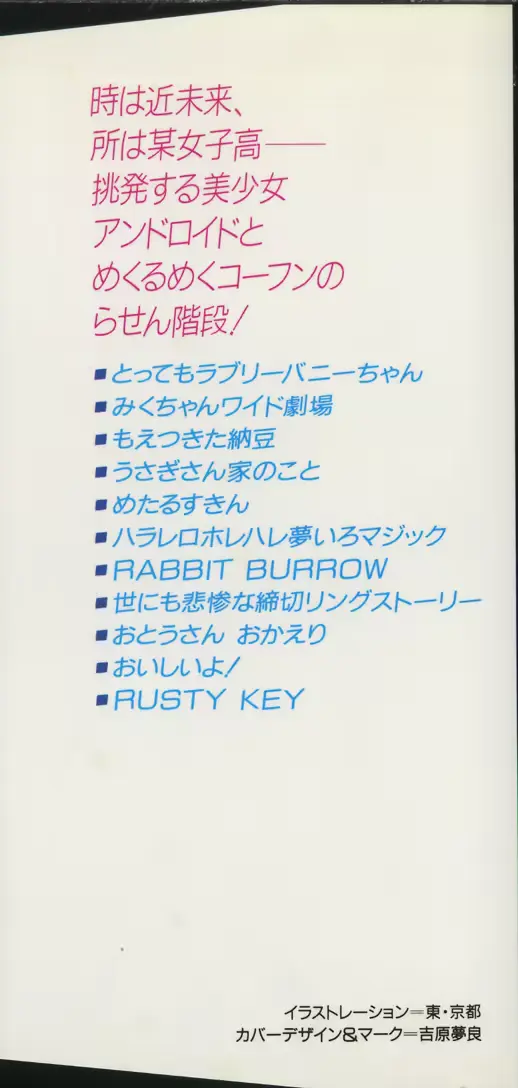 時は近未来、
所は某女子高——
挑発する美少女
アンドロイドと
めくるめくコーフンの
らせん階段!
■とってもラブリーバニーちゃん
■みくちゃんワイド劇場
■もえつきた納豆
■うさぎさん家のこと
■めたるすきん
■ハラレロホレハレ夢いろマジック
■RABBIT BURROW
■世にも悲惨な締切リングストーリー
■おとうさん おかえり
■おいしいよ!
■RUSTY KEY
イラストレーション=東・京都
カバーデザイン&マーク=吉原夢良